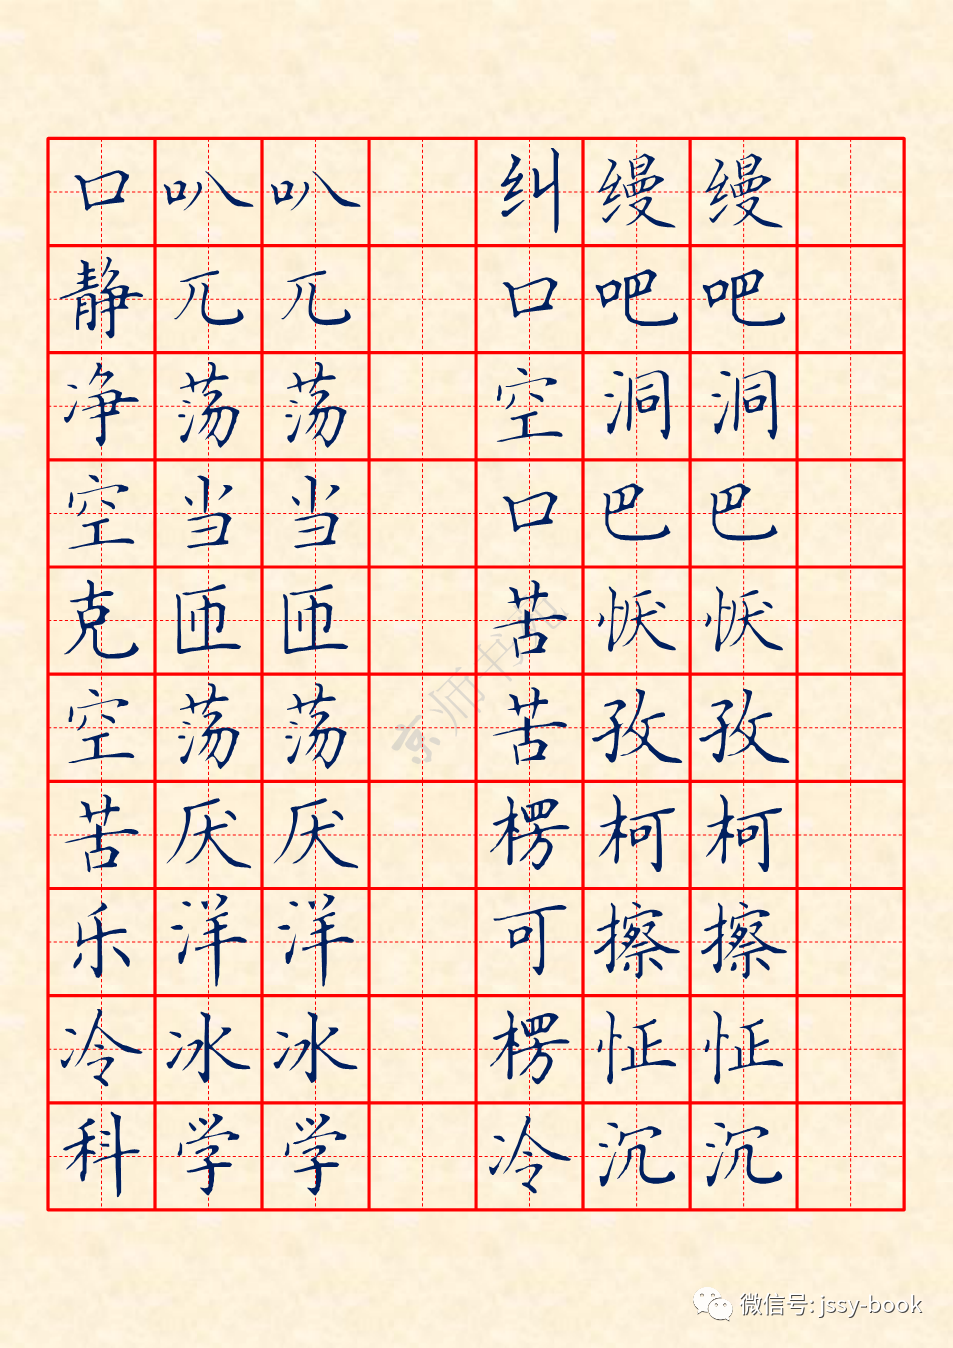 口叭叭 纠缦缦
静兀兀 口吧吧
净荡荡 空洞洞
空当当 口巴巴
克匝匝 苦恹恹
空荡荡 苦孜孜
苦厌厌 楞柯柯
乐洋洋 可擦擦
冷冰冰 楞怔怔
科学学 冷沉沉
京师书苑
微信号: jssy-book